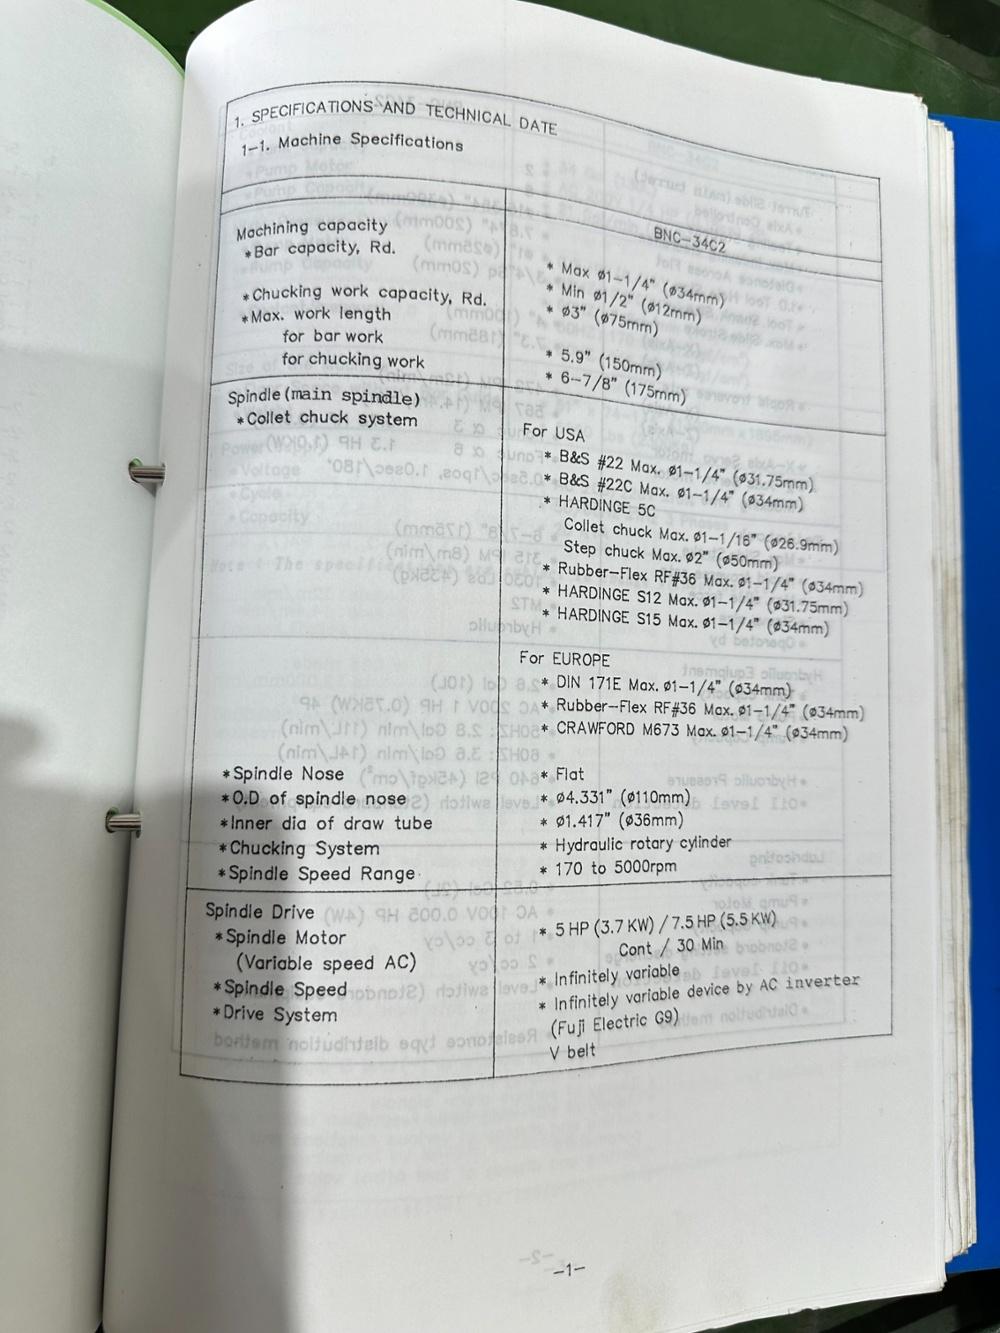 1. SPECIFICATIONS AND TECHNICAL DATE
1-1. Machine Specifications
BNC-34C2
Machining capacity
*Bar capacity, Rd.
* Max ø1-1/4" (ø34mm)
* Min ø1/2" (ø12mm)
*Chucking work capacity, Rd.
* ø3" (ø75mm)
*Max. work length
for bar work
* 5.9" (150mm)
for chucking work
* 6-7/8" (175mm)
Spindle(main spindle)
*Collet chuck system
For USA
* B&S #22 Max. ø1-1/4" (ø31.75mm)
* B&S #22C Max. ø1-1/4" (ø34mm)
* HARDINGE 5C
Collet chuck Max. ø1-1/16" (ø26.9mm)
Step chuck Max. ø2" (ø50mm)
* Rubber-Flex RF#36 Max. ø1-1/4" (ø34mm)
* HARDINGE S12 Max. ø1-1/4" (ø31.75mm)
* HARDINGE S15 Max. ø1-1/4" (ø34mm)
For EUROPE
* DIN 171E Max. ø1-1/4" (ø34mm)
* Rubber-Flex RF#36 Max. ø1-1/4" (ø34mm)
* CRAWFORD M673 Max. ø1-1/4" (ø34mm)
*Spindle Nose
* Flat
*O.D of spindle nose
* ø4.331" (ø110mm)
*Inner dia of draw tube
* ø1.417" (ø36mm)
*Chucking System
* Hydraulic rotary cylinder
*Spindle Speed Range
* 170 to 5000rpm
Spindle Drive
*Spindle Motor
* 5 HP (3.7 KW) / 7.5 HP (5.5 KW)
(Variable speed AC)
Cont / 30 Min
*Spindle Speed
* Infinitely variable
*Drive System
* Infinitely variable device by AC inverter
(Fuji Electric G9)
V belt
-1-